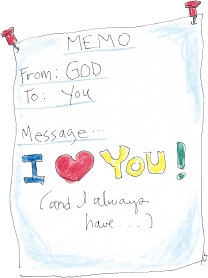 MEMO
From: GOD
To: You
Message...
I ❤ You!
(and I always
have....)